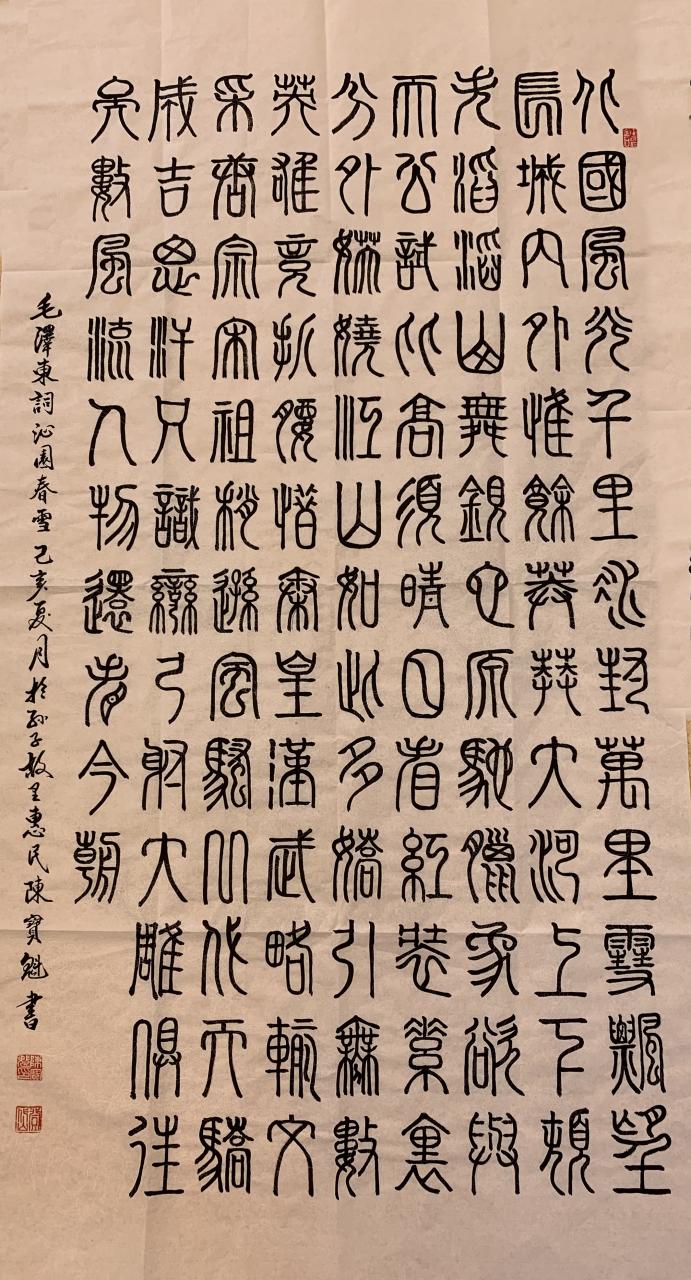 北國風光千里冰封萬里雪飄望
長城內外惟餘莽莽大河上下頓
失滔滔山舞銀蛇原馳臘象欲與
天公試比高須晴日看紅裝素裹
分外妖嬈江山如此多嬌引無數
英雄竞折腰惜秦皇漢武略輸文
采唐宗宋祖稍遜風騷一代天驕
成吉思汗只識彎弓射大雕俱往
矣數風流人物還看今朝
毛澤東詞沁園春雪 己亥夏月於孫子故里惠民陳寶魁書